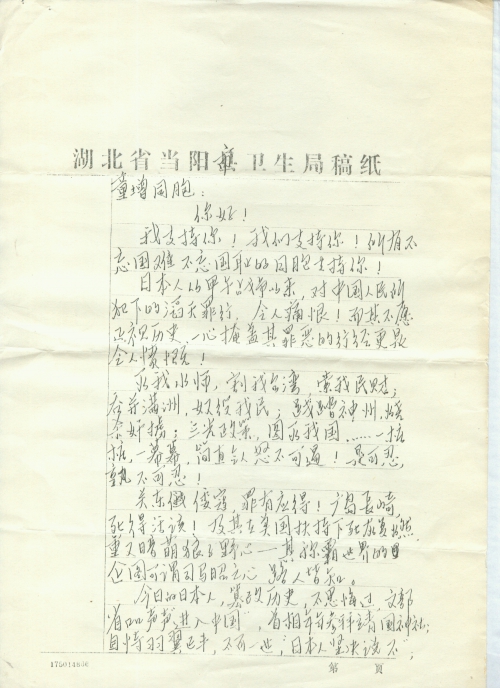 湖北省当阳县卫生局稿纸
市
童增同胞：
你好！
我支持你！我们支持你！所有不
忘国难不忘国耻的同胞支持你！
日本人从甲午战争以来，对中国人民所
犯下的滔天罪行，令人痛恨！而其不愿
正视历史，一心掩盖其罪恶的行径更是
令人愤怒！
我水师，割我台湾，索我民财；
吞并满洲，奴役我民；践踏神州，烧
杀奸掳；三光政策，图我国……一桩
桩，一幕幕，简直让人怒不可遏！是可忍，
孰不可忍！
关东倭寇，罪有应得！广岛长崎，
死得活该！及其在美国扶持下死灰复燃
重又萌狼子野心——其称霸世界的
企图可谓司马昭之心路人皆知。
今日的日本人，篡改历史，不思悔过，文部
省声声“进入中国”，首相参拜靖国神社；
自恃羽翼已丰，不可一世；日本人坚决说不；
175014806
第 页